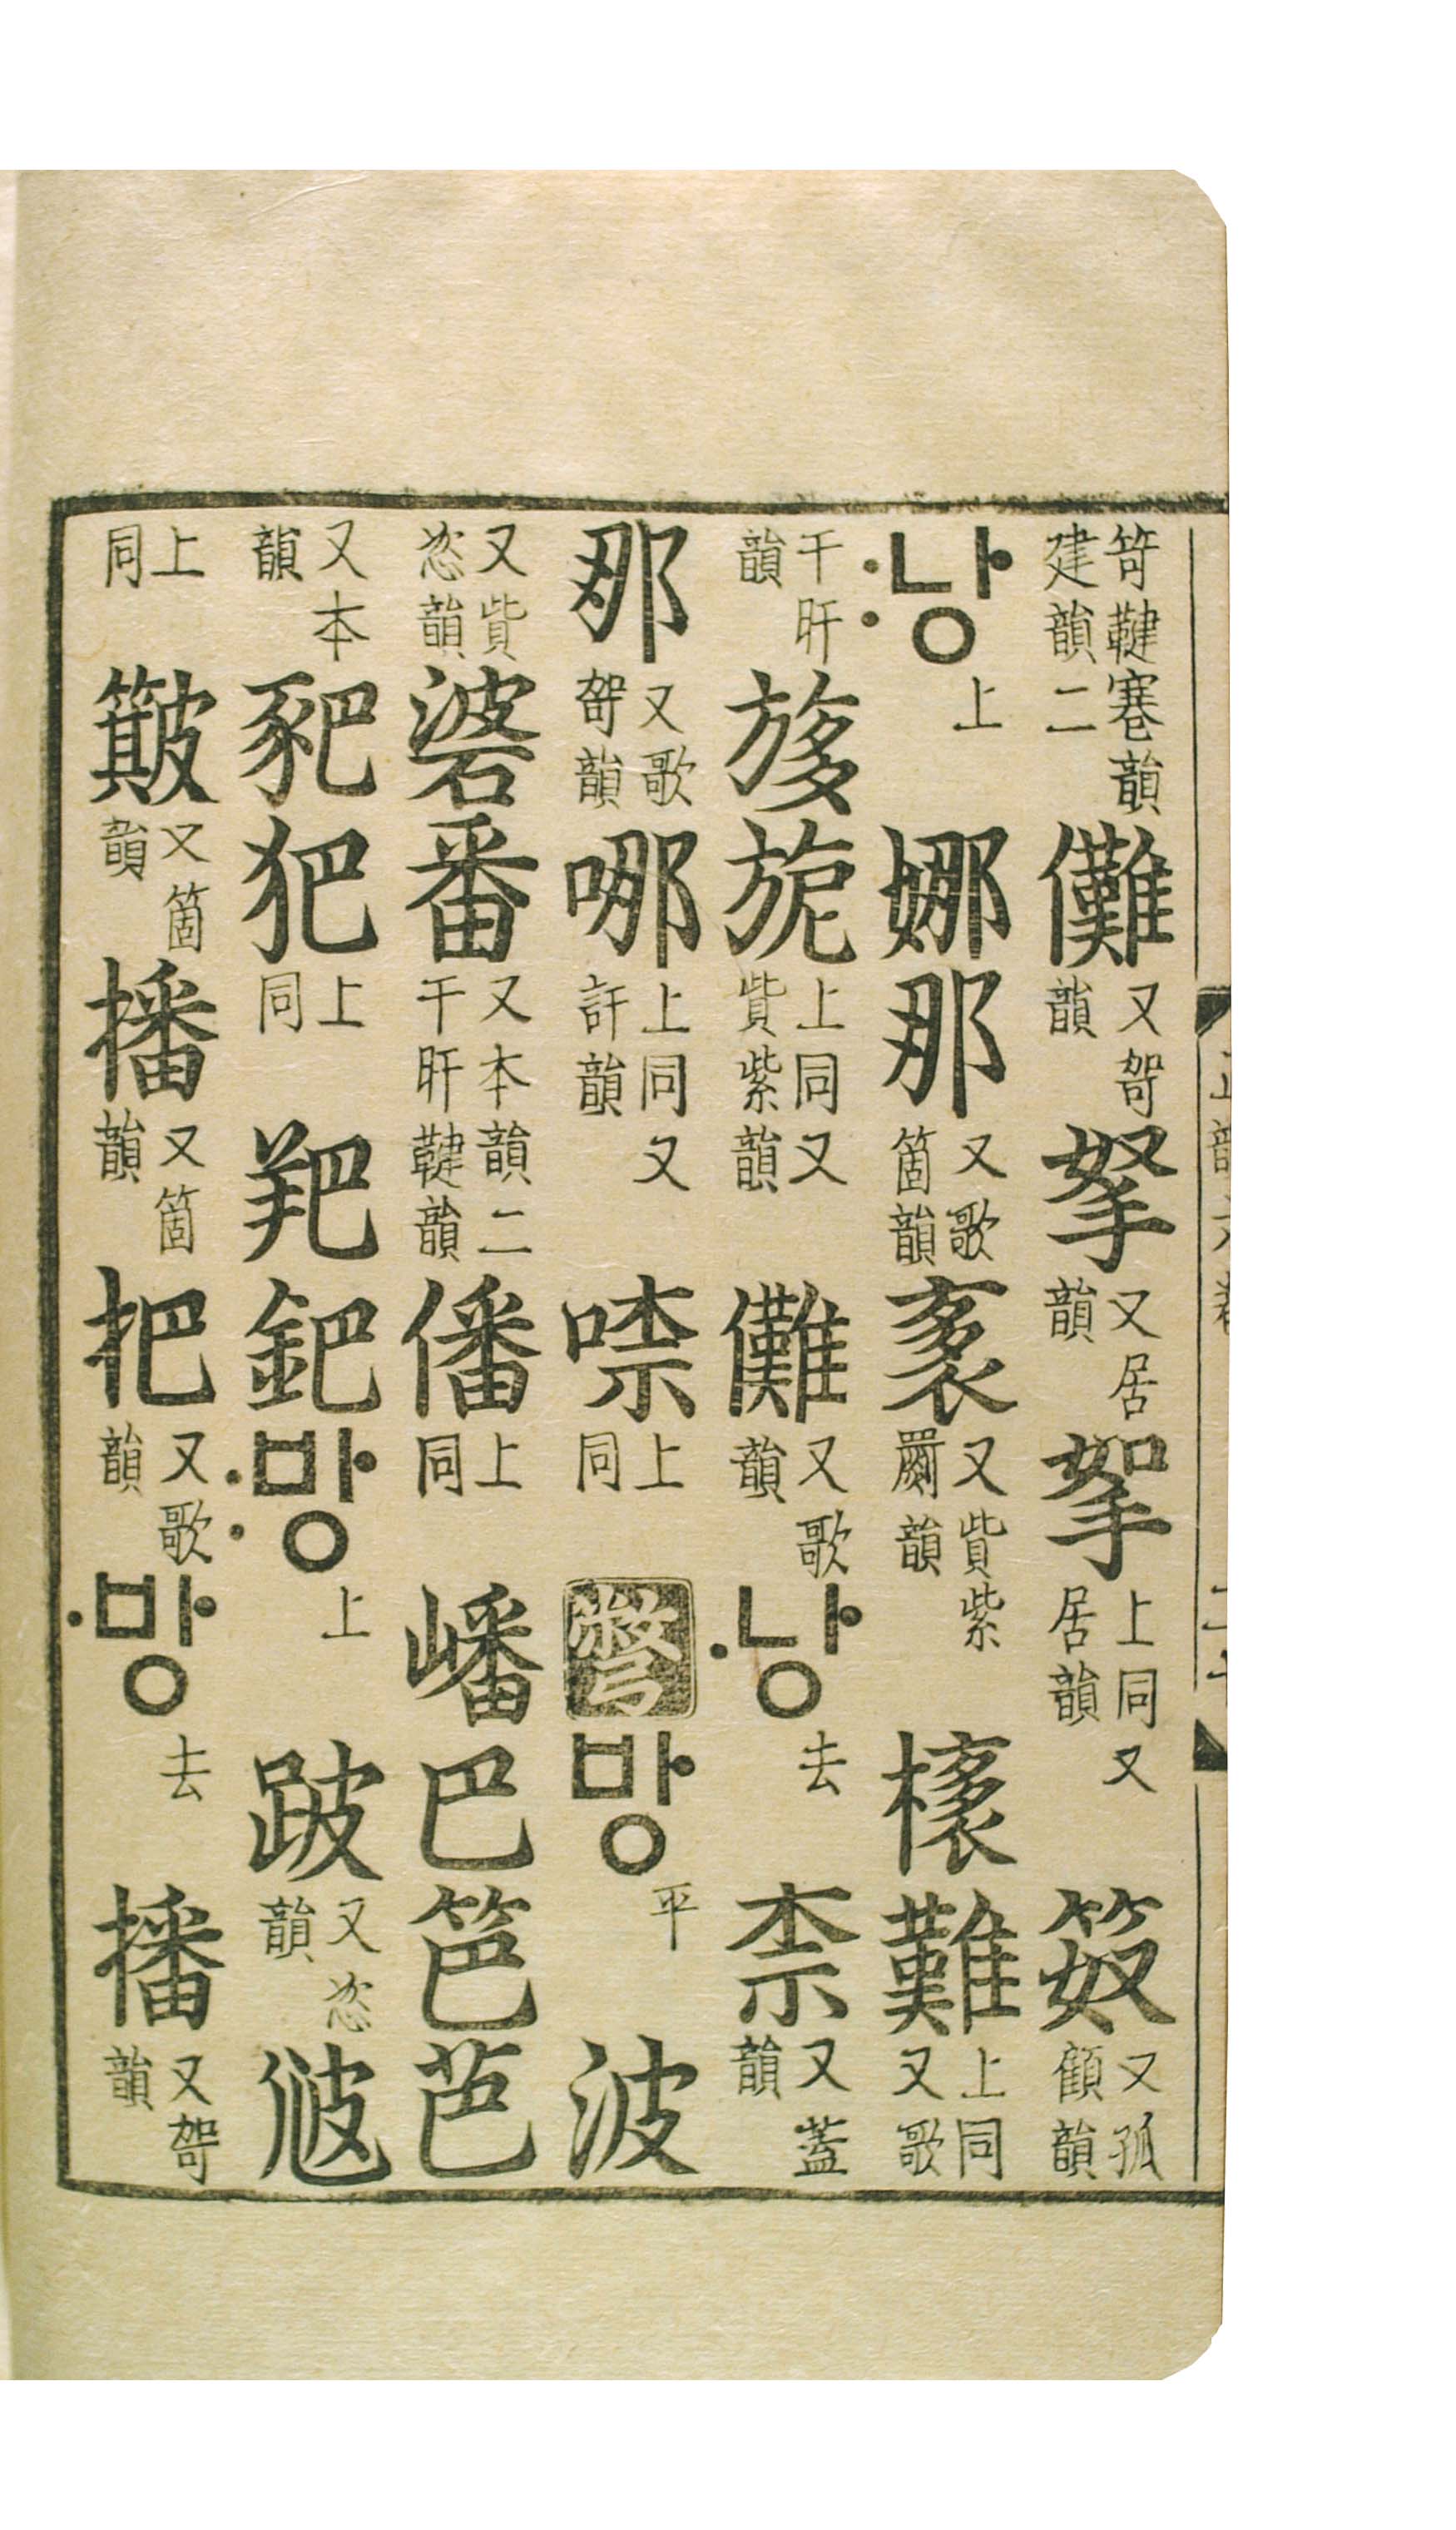 笴鞬寋韻建韻二儺又哿韻拏又居韻挐上同又居韻笯又孤顧韻
낭〯上娜那又歌箇韻袲又貲紫罽韻橠難上同又歌
干旰韻㫊旎上同又貲紫韻儺又歌韻낭〮去柰又蓋韻
那又歌哿韻哪上同又訐韻㖠上同彆방平波
又貲恣韻碆番又本韻二干旰鞬韻僠上同嶓巴笆芭
又本韻豝犯上同羓鈀방〯上跛又恣韻
上同簸又箇韻播又箇韻把又歌韻방〮去播又哿韻